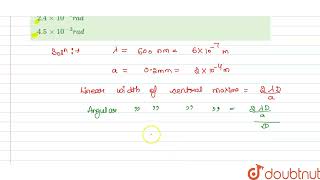 2.4 × 10⁻³ rad
4.5 × 10⁻³ rad
Solⁿ :→ λ = 600 nm = 6×10⁻⁷ m
a = 0.2mm = 2×10⁻⁴ m
Linear width of central maxima = 2λD/a
Angular " " " " = 2λD/a / D
doubtnut